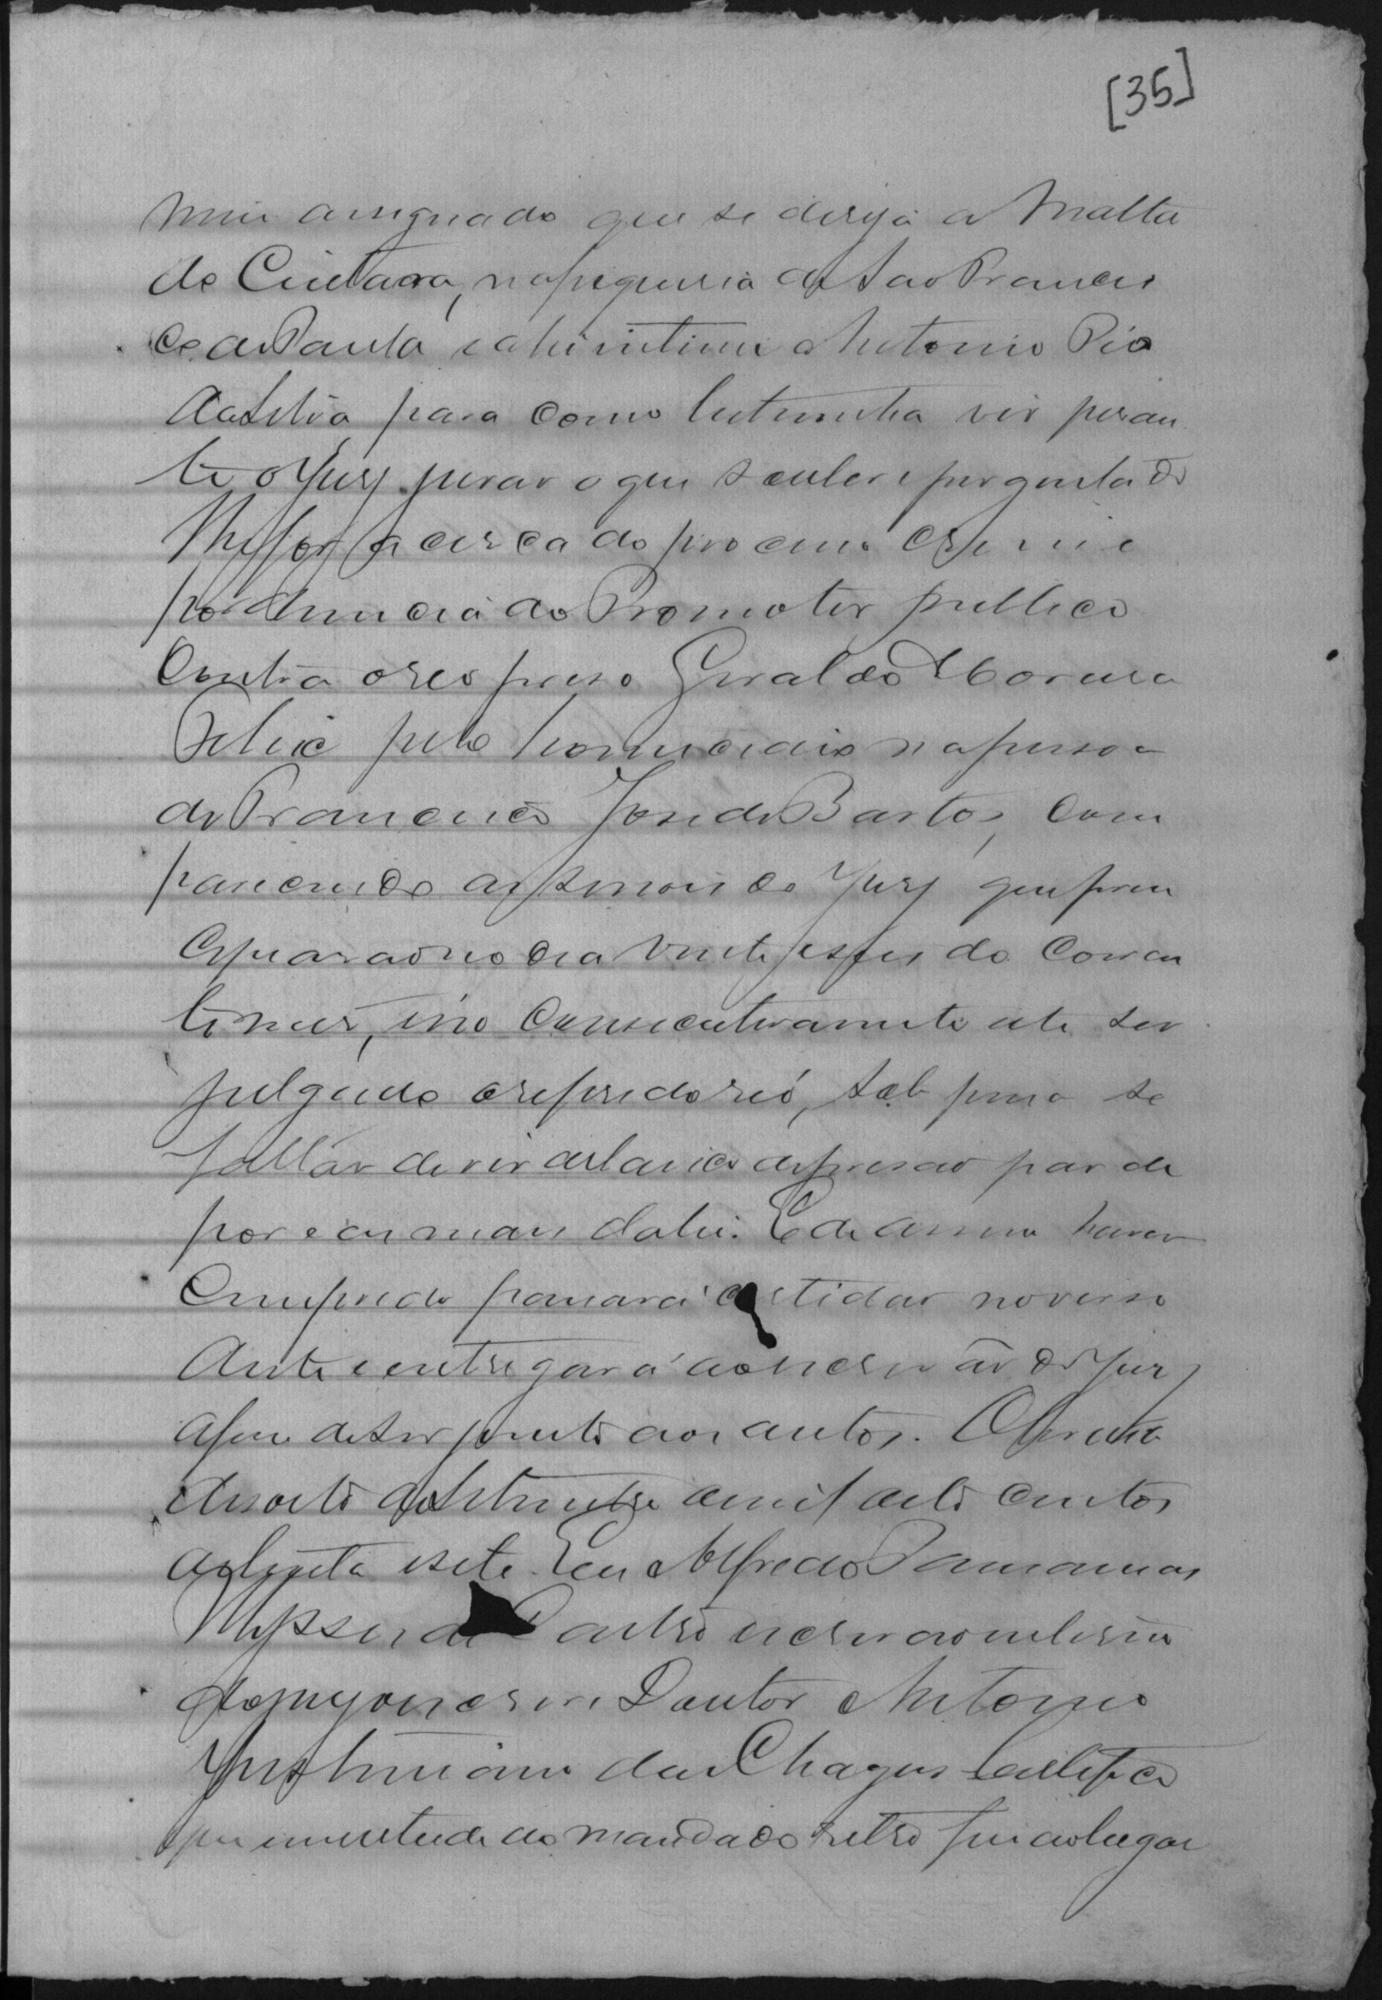 [35]
mim assignado que se dirija a Matta
do Cintara, na freguesia de Sao Francis
co de Paula e ahi intime a Antonio Pio
da Silva para como testemunha vir peran
te o Jury jurar o que souber e perguntado
lhe for a cerca do processo crime
por denuncia do Promotor publico
contra o reo preso Geraldo Moreira
Felix pelo homicidio na pessoa
de Francisco José de Bastos, com
parecendo as sessoes do Jury que prin
cipiarao no dia vinte e seis do corren
te mes, e no consecutivamente até ser
julgado o referido reó, sob pena se
faltar de vir debaixo de prisao par de
por e as mais da lei. E de assim haver
cumprido passará certidao no verso
deste e entregará ao escrivão do Jury
afim de ser junto aos autos. Ofrcto
desoito de Setembro de mil oito centos
oitenta e sete. Eu Alfredo Damamias
de Castro escrivao interino
do Jury o escrevi. Doutor Antonio
Justiniano das Chagas Certifico
que em virtude do mandado retro fui ao lugar